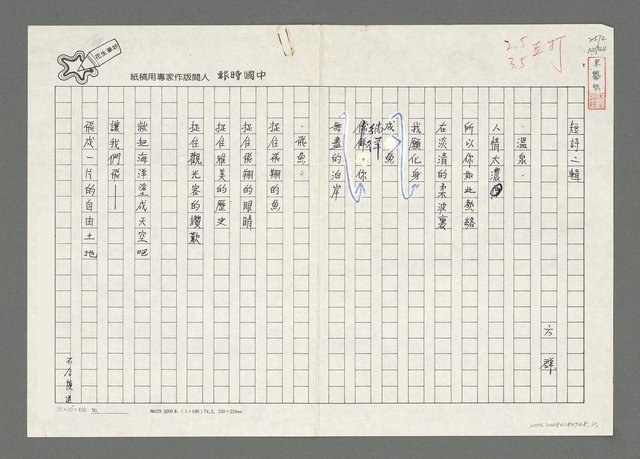 中國時報 人間版作家專用稿紙
花生筆鈔
2.5
3.5 直打
短詩二輯
方群
溫泉.
人情太濃
所以你如此熱絡
在淡清的柔波裏
我願化身
成魚
徜徉
你
無盡的泊岸
.飛魚.
捉住飛翔的魚
捉住飛翔的眼睛
捉住雅美的歷史
捉住觀光客的讚歎
就把海洋塗成天空吧
讓我們飛——
飛成一片的自由土地
20×20=400 No.